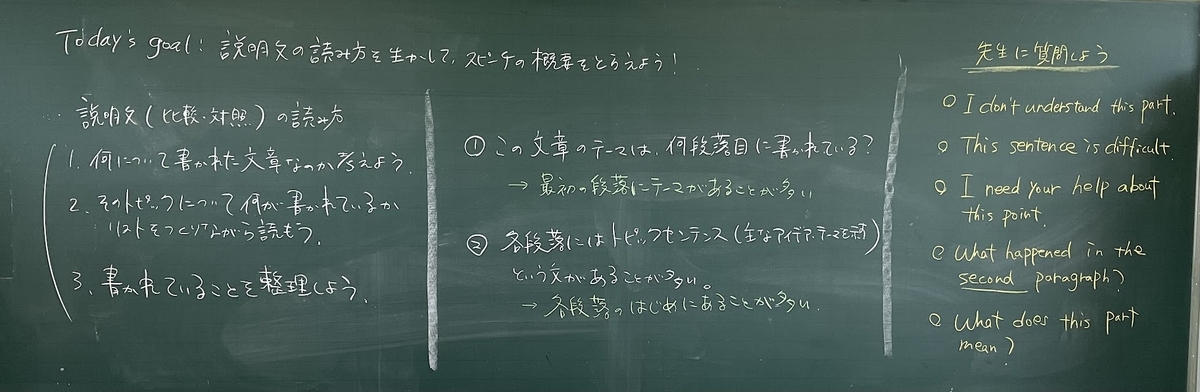 Today's goal: 説明文の読み方を生かして、スピーチの概要をとらえよう!
説明文(比較・対照)の読み方
1. 何について書かれた文章なのか考えよう.
2. そのトピックについて何が書かれているか
リストをつくりながら読もう.
3. 書かれていることを整理しよう.
① この文章のテーマは、何段落目に書かれている?
→ 最初の段落にテーマがあることが多い
② 各段落にはトピックセンテンス(主なアイデア・テーマを示す)
という文があることが多い。
→ 各段落のはじめにあることが多い.
先生に質問しよう
○ I don't understand this part.
○ This sentence is difficult.
○ I need your help about
this point.
○ What happened in the
second paragraph?
○ What does this part
mean?